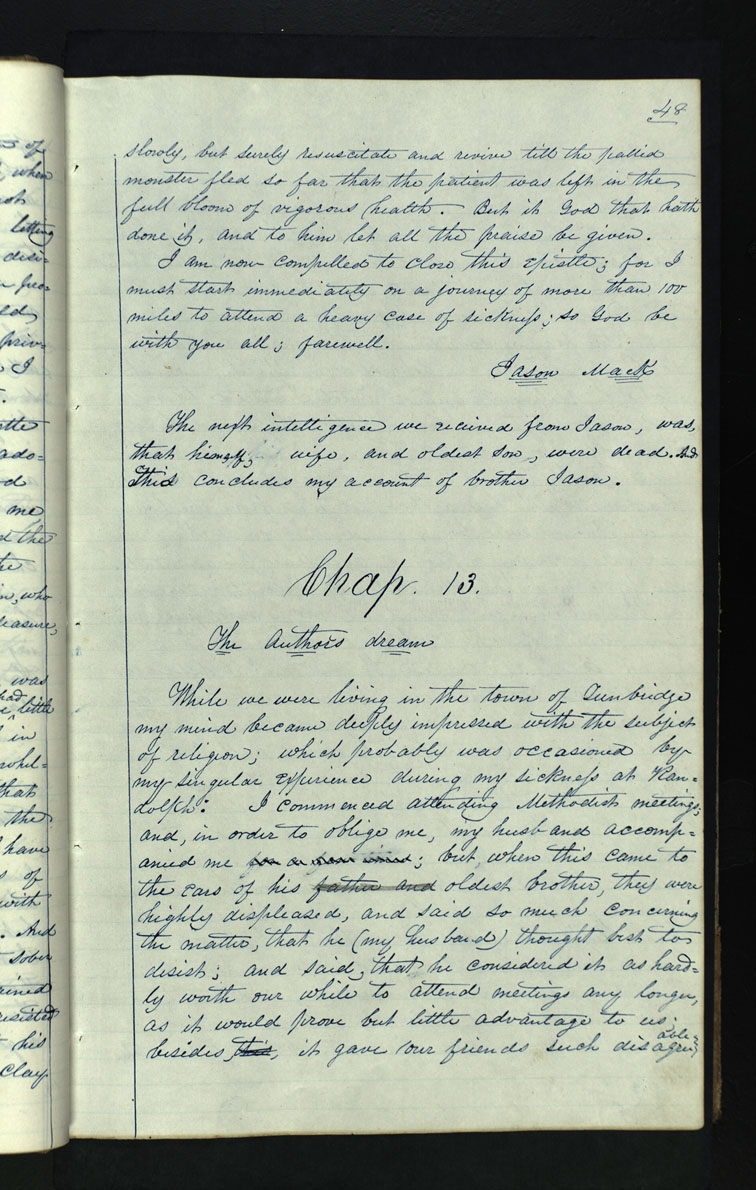 48
slowly, but surely resuscitate and revive till the pallid
monster fled so far that the patient was left in the
full bloom of vigorous health. But it God that hath
done it, and to him let all the praise be given.
I am now compelled to close this epistle; for I
must start immediately on a journey of more than 100
miles to attend a heavy case of sickness; so God be
with you all; farewell.
Jason Mack
The next intelligence we received from Jason, was,
that himself, his wife, and oldest son, were dead. And
this concludes my account of brother Jason.
Chap. 13.
The Authors dream
While we were living in the town of Tunbridge
my mind became deeply impressed with the subject
of religion; which probably was occasioned by
my singular experience during my sickness at Ran=
dolph. I commenced attending Methodist meetings;
and, in order to oblige me, my husband accomp=
anied me; but, when this came to
the ears of his father and oldest brother, they were
highly displeased, and said so much concerning
the matter, that he (my husband) thought best to
desist; and said, that he considered it as hard=
ly worth our while to attend meetings any longer,
as it would prove but little advantage to us;
besides, this, it gave our friends such disagree=
able=
of
when
letting
I
me
the
was
had
little
in
that
the
have
of
with
And
sober
his
clay